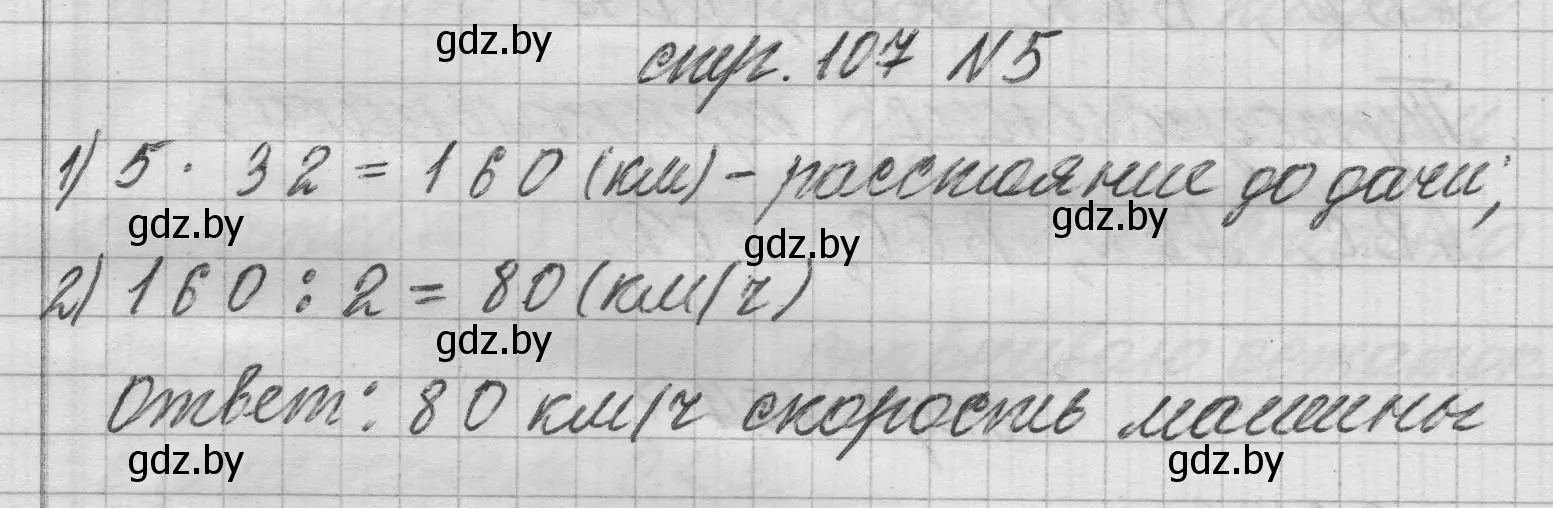 gdz.by
стр. 107 N 5
1) 5 · 32 = 160 (км) - расстояние до дачи;
gdz.by gdz.by gdz.by
2) 160 : 2 = 80 (км/ч)
gdz.by
Ответ: 80 км/ч скорость машины
gdz.by gdz.by